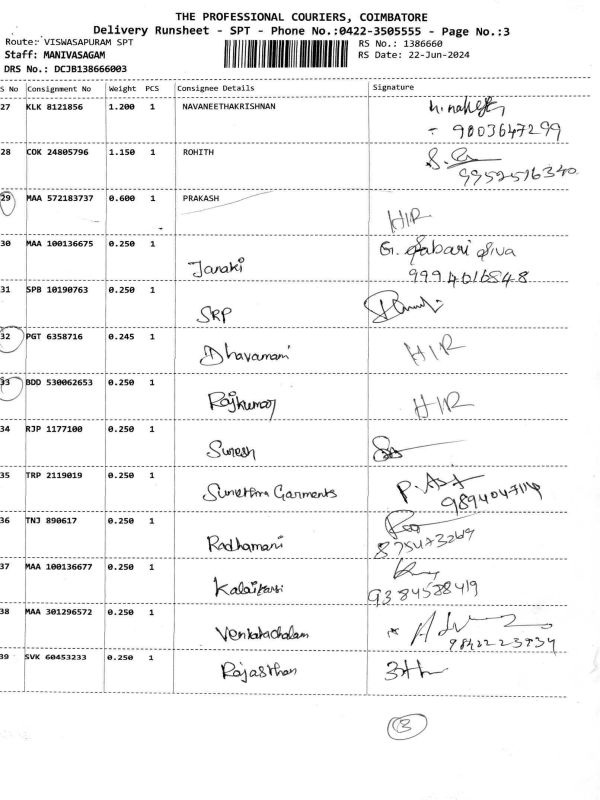 THE PROFESSIONAL COURIERS, COIMBATORE
Delivery Runsheet - SPT - Phone No.:0422-3505555 - Page No.:3
Route: VISWASAPURAM SPT RS No.: 1386660
Staff: MANIVASAGAM RS Date: 22-Jun-2024
DRS No.: DCJB138666003
S No Consignment No Weight PCS Consignee Details Signature
27 KLK 8121856 1.200 1 NAVANEETHAKRISHNAN
- 9003647299
28 COK 24805796 1.150 1 ROHITH
9952576340
29 MAA 572183737 0.600 1 PRAKASH
HIR
30 MAA 100136675 0.250 1 Janaki G. Sabari Siva
9994016848
31 SPB 10190763 0.250 1 SRP
32 PGT 6358716 0.245 1 Dhavamani HIR
33 BDD 530062653 0.250 1 Rajkumar HIR
34 RJP 1177100 0.250 1 Suresh
35 TRP 2119019 0.250 1 Sumithra Garments
36 TNJ 890617 0.250 1 Radhamani
875473269
37 MAA 100136677 0.250 1
9384588419
38 MAA 301296572 0.250 1 Venkatachalam
39 SVK 60453233 0.250 1 Rajasthan
3